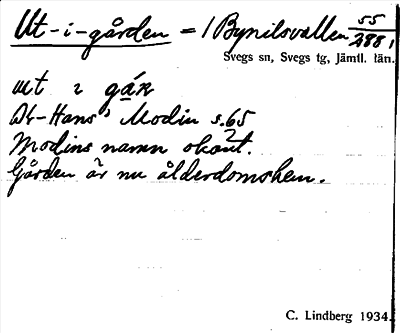 Ut-i-gården = 1 Bynilsvallen 55/2881
Svegs sn, Svegs tg, Jämtl. län.
ut i
Modin s. 65
Modins namn okänt.
Gården är nu ålderdomshem.
C. Lindberg 1934.